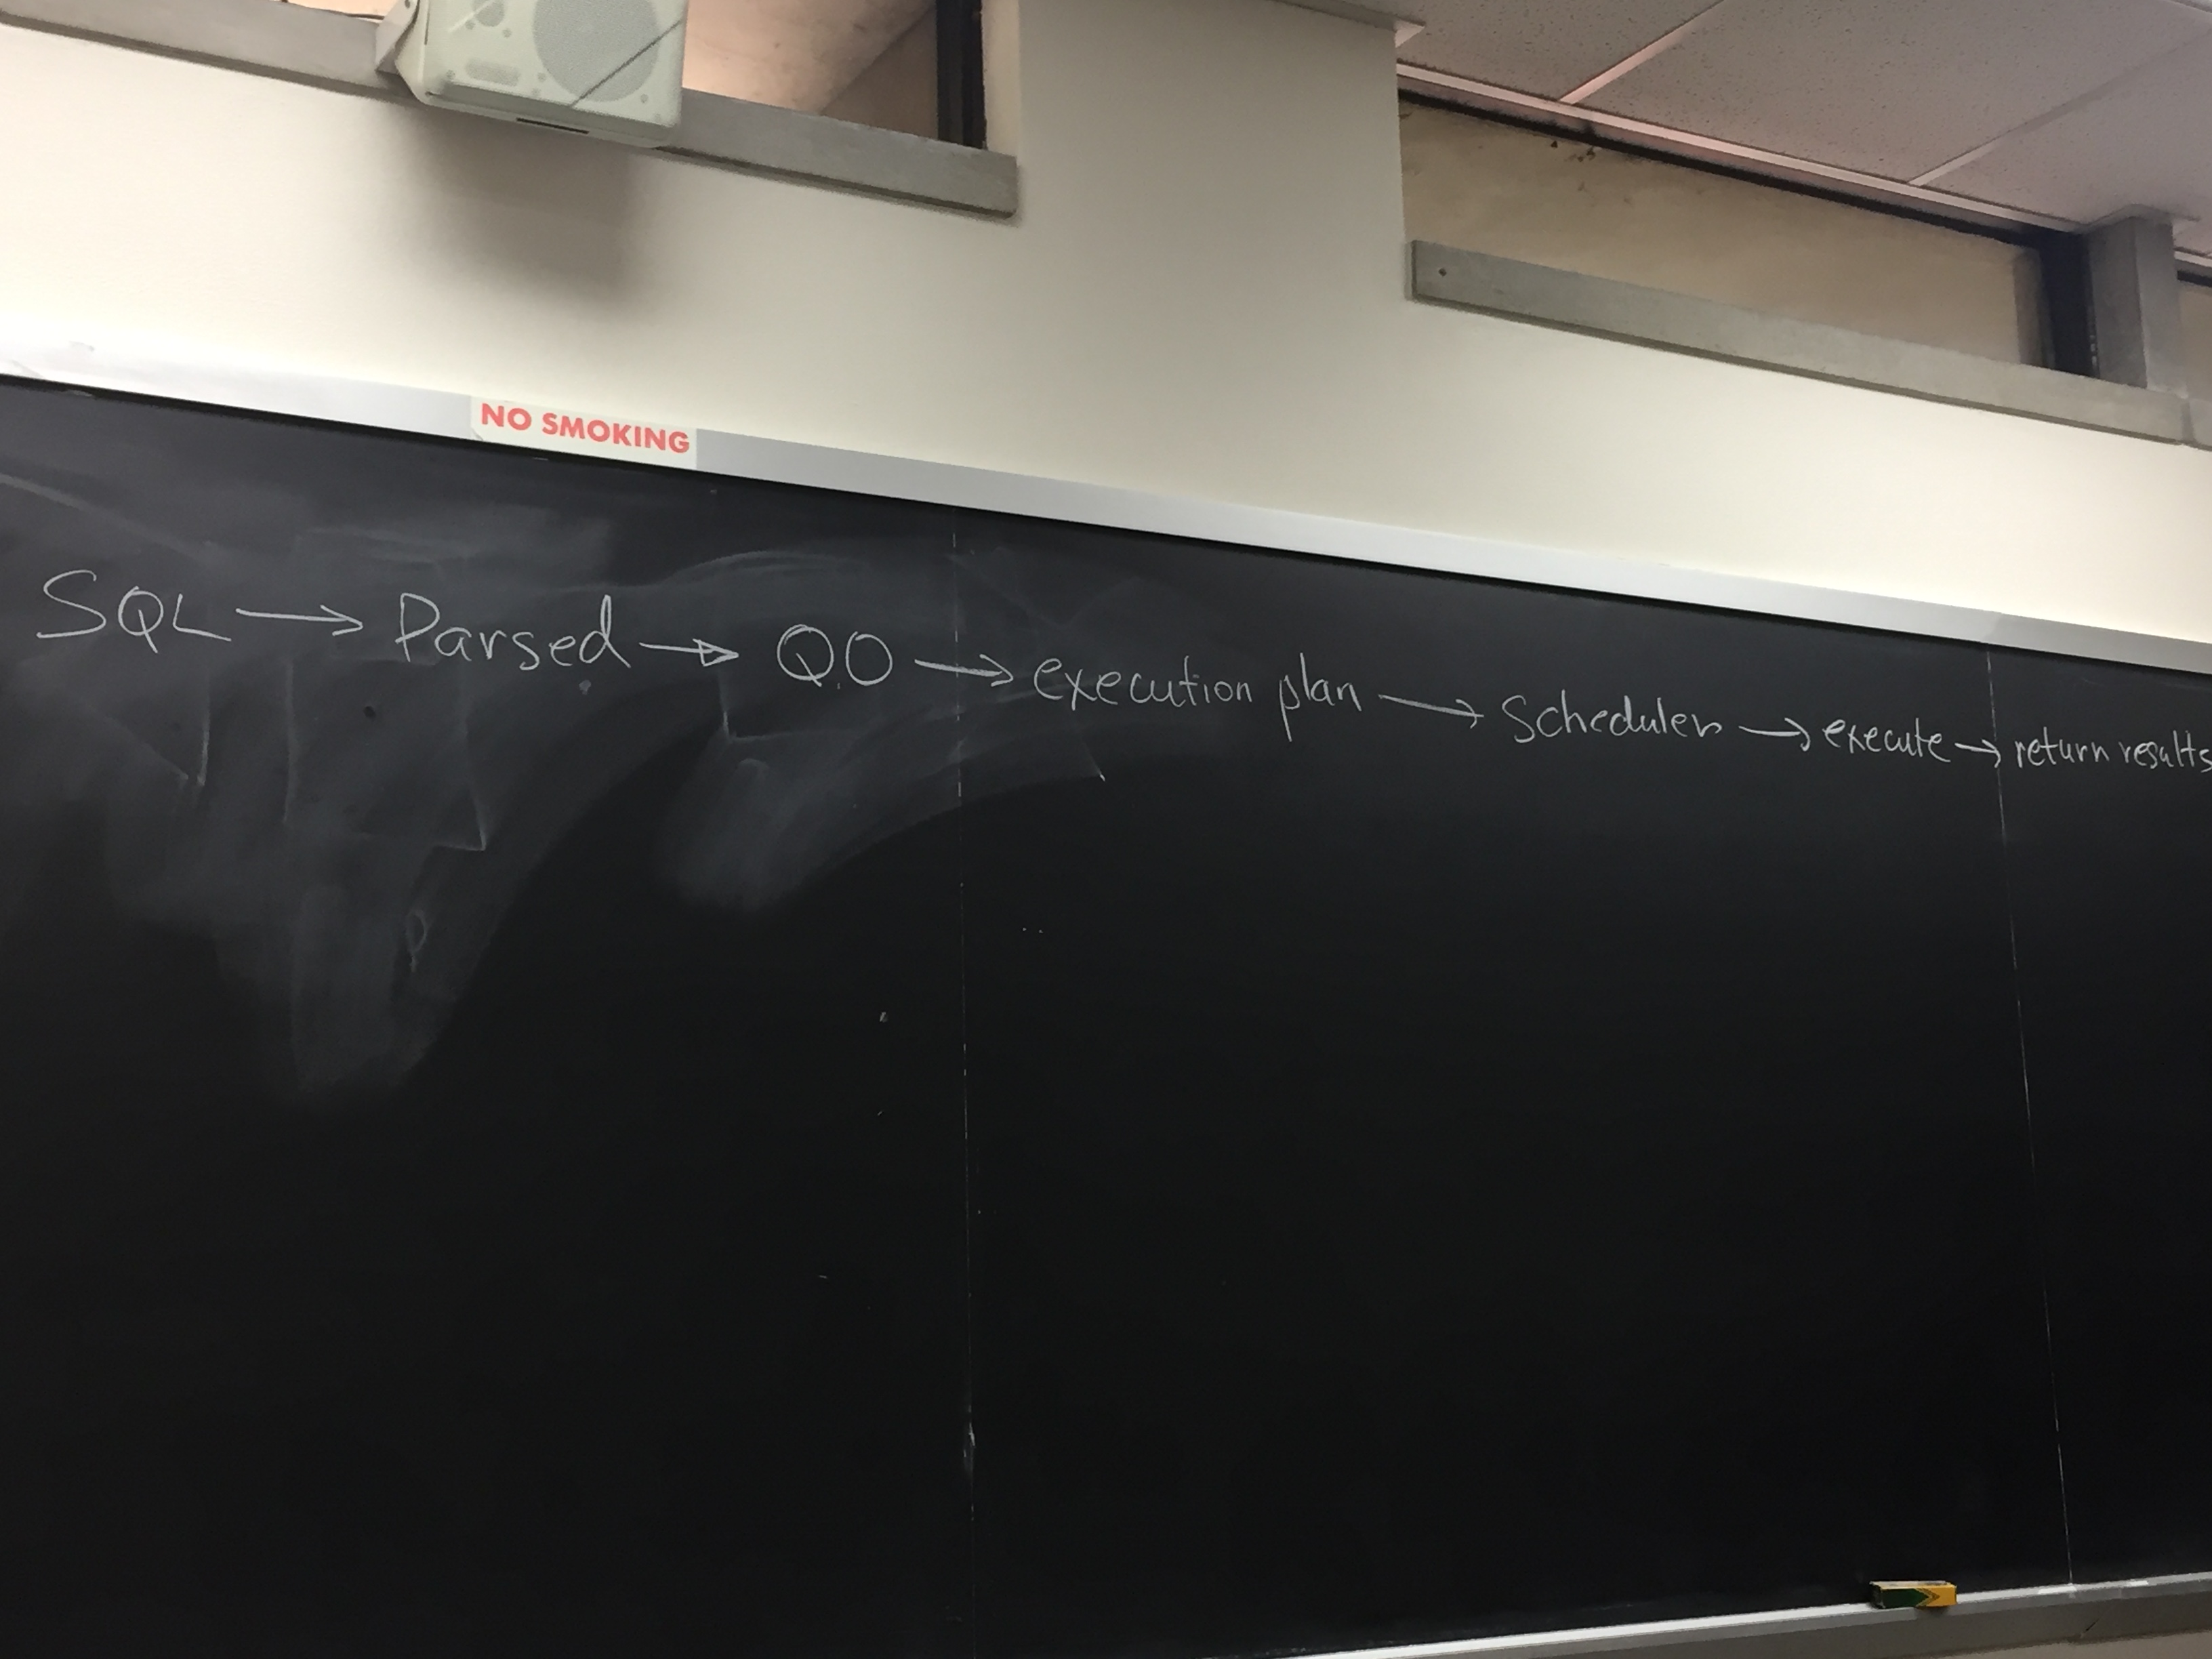 NO SMOKING
SQL → Parsed → QO → execution plan → Scheduler → execute → return results